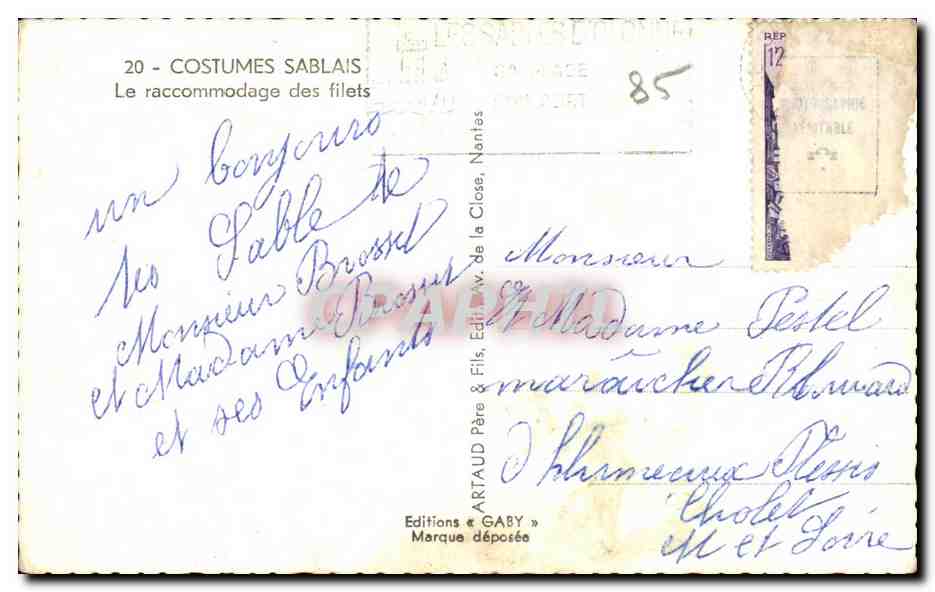 20 - COSTUMES SABLAIS
Le raccommodage des filets
LES SABLES D'OLONNE
85
REP
12
un bonjours
les Sable de
Monsieur Brossel
et Madame Brossel
et ses Enfants
ARTAUD Père & Fils, Edit. Av. de la Close, Nantes
CPAPHIL
Monsieur
et Madame Pestel
maraîcher
Plessis
Cholet
M et Loire
Editions « GABY »
Marque déposée